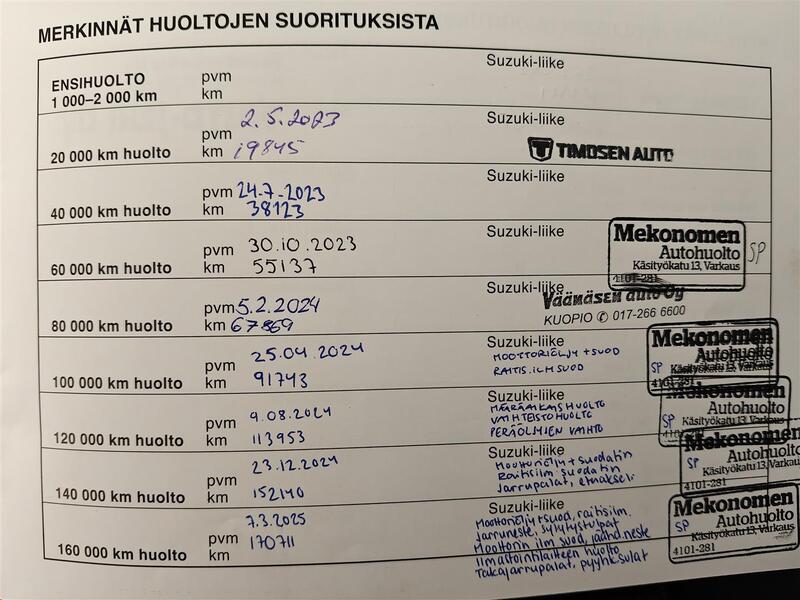 MERKINNÄT HUOLTOJEN SUORITUKSISTA
ENSIHUOLTO
1 000–2 000 km
pvm
km
Suzuki-liike
20 000 km huolto
pvm 2.5.2023
km 19845
Suzuki-liike
TIMOSEN AUTO
40 000 km huolto
pvm 24.7.2023
km 38123
Suzuki-liike
60 000 km huolto
pvm 30.10.2023
km 55137
Suzuki-liike
Mekonomen
Autohuolto
Käsityökatu 13, Varkaus
4101-281
SP
80 000 km huolto
pvm 5.2.2024
km 67869
Suzuki-liike
Väänäsen auto Oy
KUOPIO ✆ 017-266 6600
100 000 km huolto
pvm 25.04.2024
km 91743
Suzuki-liike
MOOTTORIÖLJY + SUOD
RAITIS.ILM SUOD
Mekonomen
Autohuolto
Käsityökatu 13, Varkaus
SP
4101-281
120 000 km huolto
pvm 9.08.2024
km 113953
Suzuki-liike
MÄÄRÄAIKAISHUOLTO
VAIHTEISTOHUOLTO
PERÄÖLJYIEN VAIHTO
Mekonomen
Autohuolto
Käsityökatu 13, Varkaus
SP
4101-281
140 000 km huolto
pvm 23.12.2024
km 152140
Suzuki-liike
Moottoriöljy + suodatin
Raitisilm. suodatin
Jarrupalat, etuakseli
Mekonomen
Autohuolto
Käsityökatu 13, Varkaus
SP
4101-281
160 000 km huolto
pvm 7.3.2025
km 170711
Suzuki-liike
Moottoriöljy+suod, raitisilm.
Jarruneste, sytytystulpat
Moottorin ilm suod, jäähd.neste
Ilmastointilaitteen huolto
Takajarrupalat, pyyhk.sulat
Mekonomen
Autohuolto
Käsityökatu 13, Varkaus
SP
4101-281